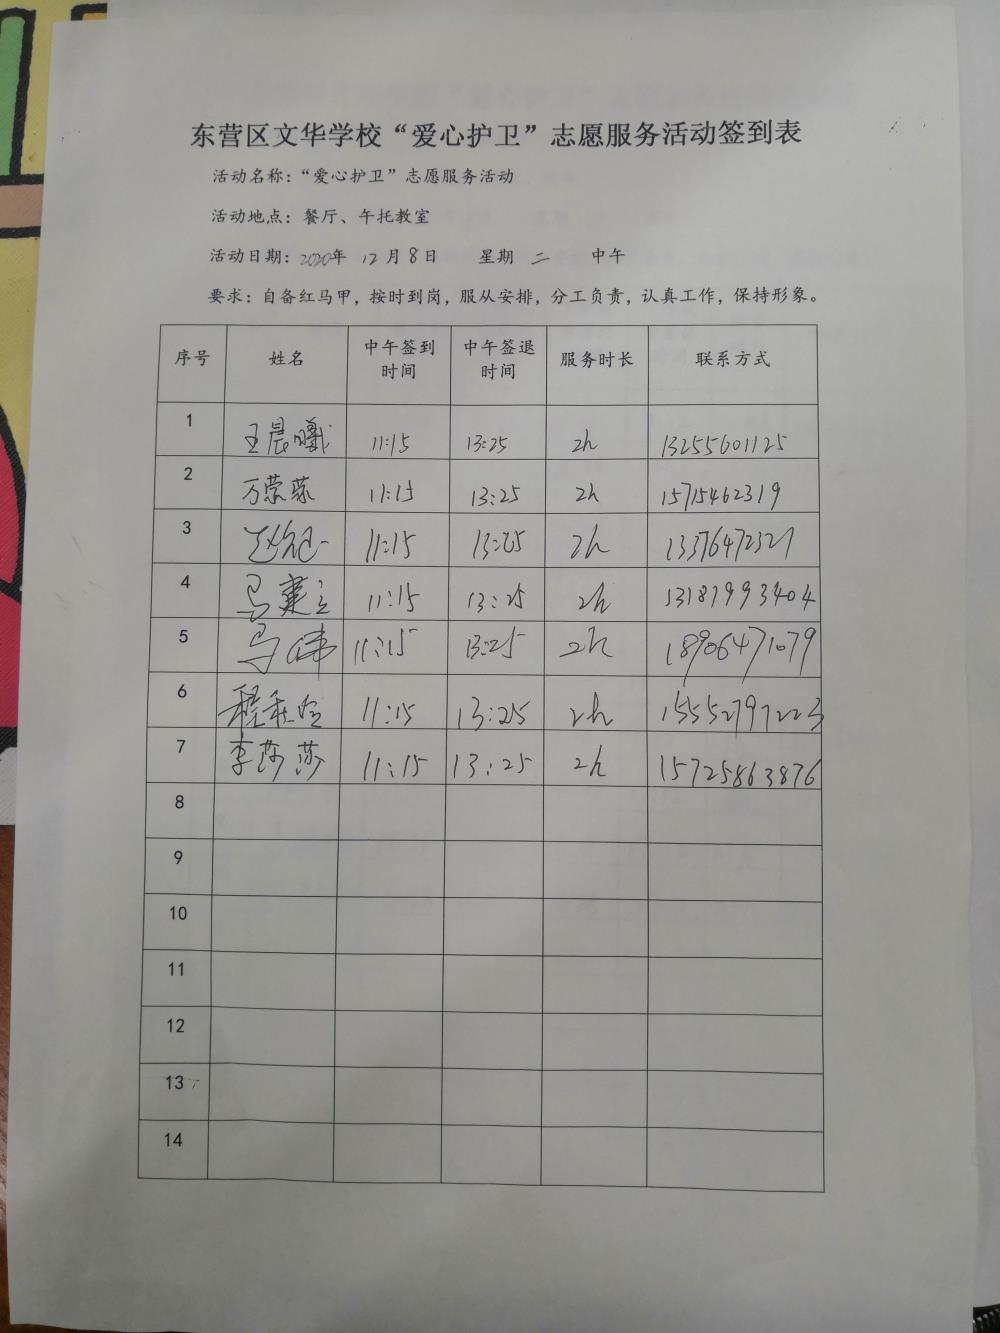 东营区文华学校“爱心护卫”志愿服务活动签到表
活动名称：“爱心护卫”志愿服务活动
活动地点：餐厅、午托教室
活动日期：2020年 12月8日 星期 二 中午
要求：自备红马甲，按时到岗，服从安排，分工负责，认真工作，保持形象。
序号 姓名 中午签到时间 中午签退时间 服务时长 联系方式
1 王晨曦 11:15 13:25 2h 13255601125
2 万荣荣 11:15 13:25 2h 15715462319
3 11:15 13:25 2h 13376472327
4 马建立 11:15 13:25 2h 13181993404
5 马伟 11:15 13:25 2h 18906471079
6 11:15 13:25 2h 15552797223
7 李莎莎 11:15 13:25 2h 15725863876
8
9
10
11
12
13
14